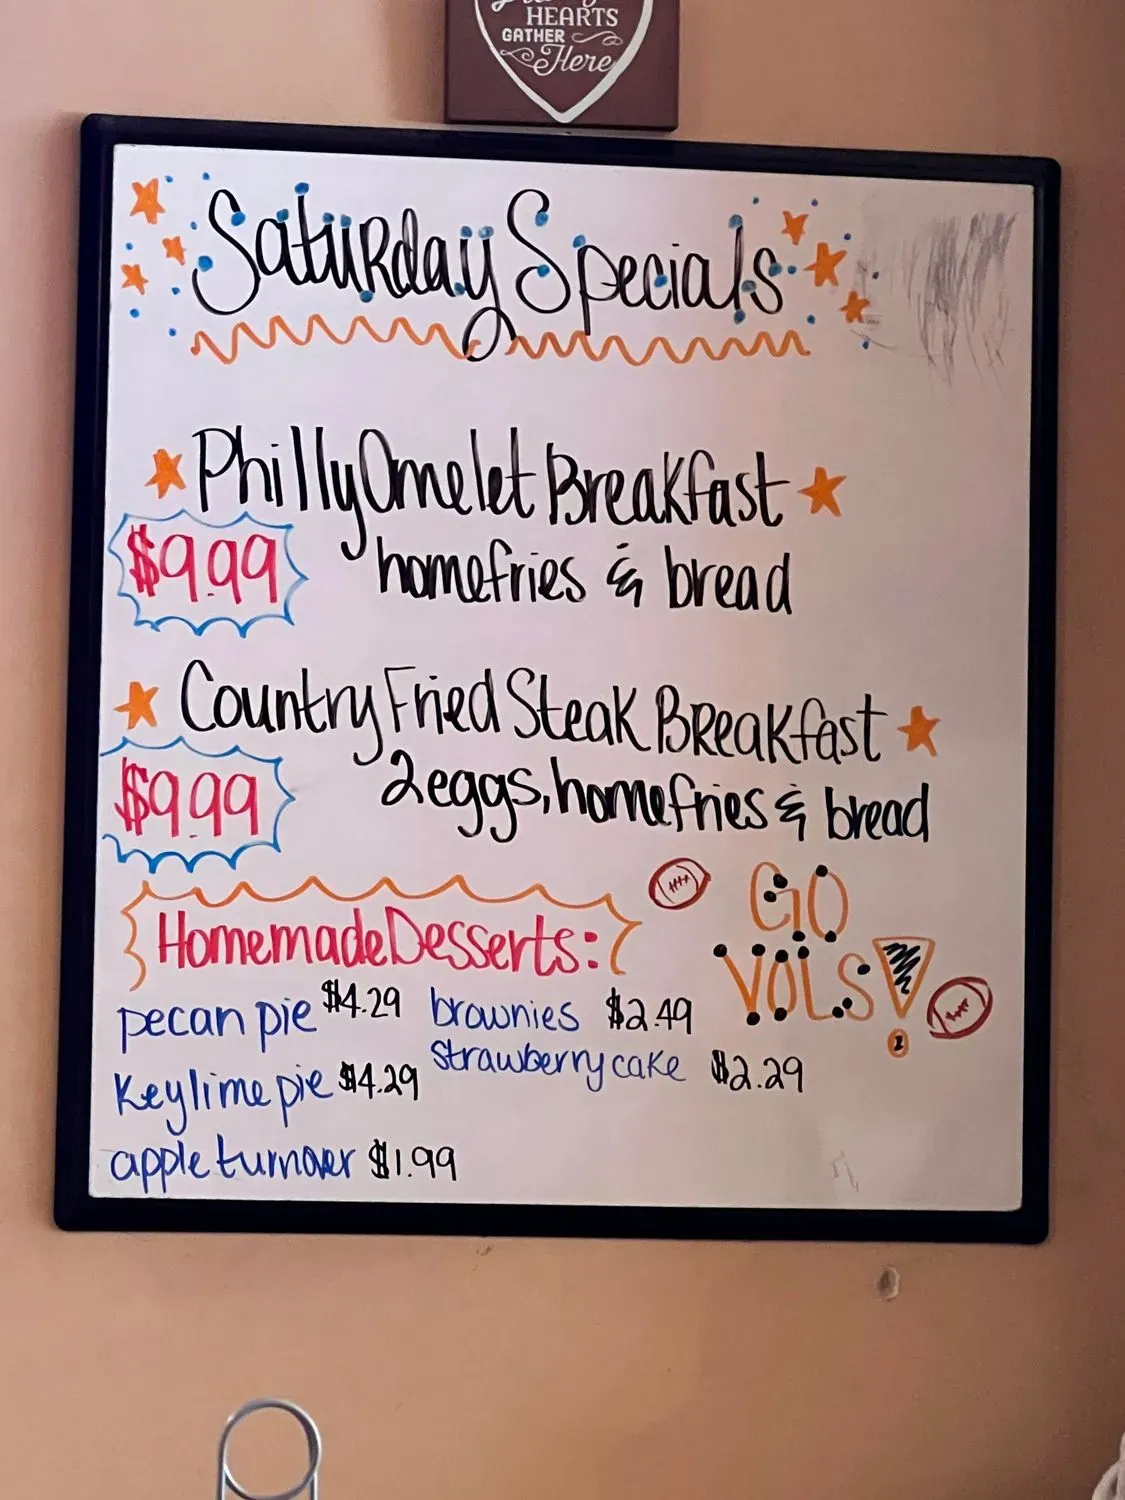 HEARTS
GATHER
Here
Saturday Specials
Philly Omelet Breakfast
$9.99
homefries & bread
Country Fried Steak Breakfast
$9.99
2 eggs, homefries & bread
Homemade Desserts:
GO
VOLS!
pecan pie $4.29 brownies $2.49
Key lime pie $4.29 strawberry cake $2.29
apple turnover $1.99